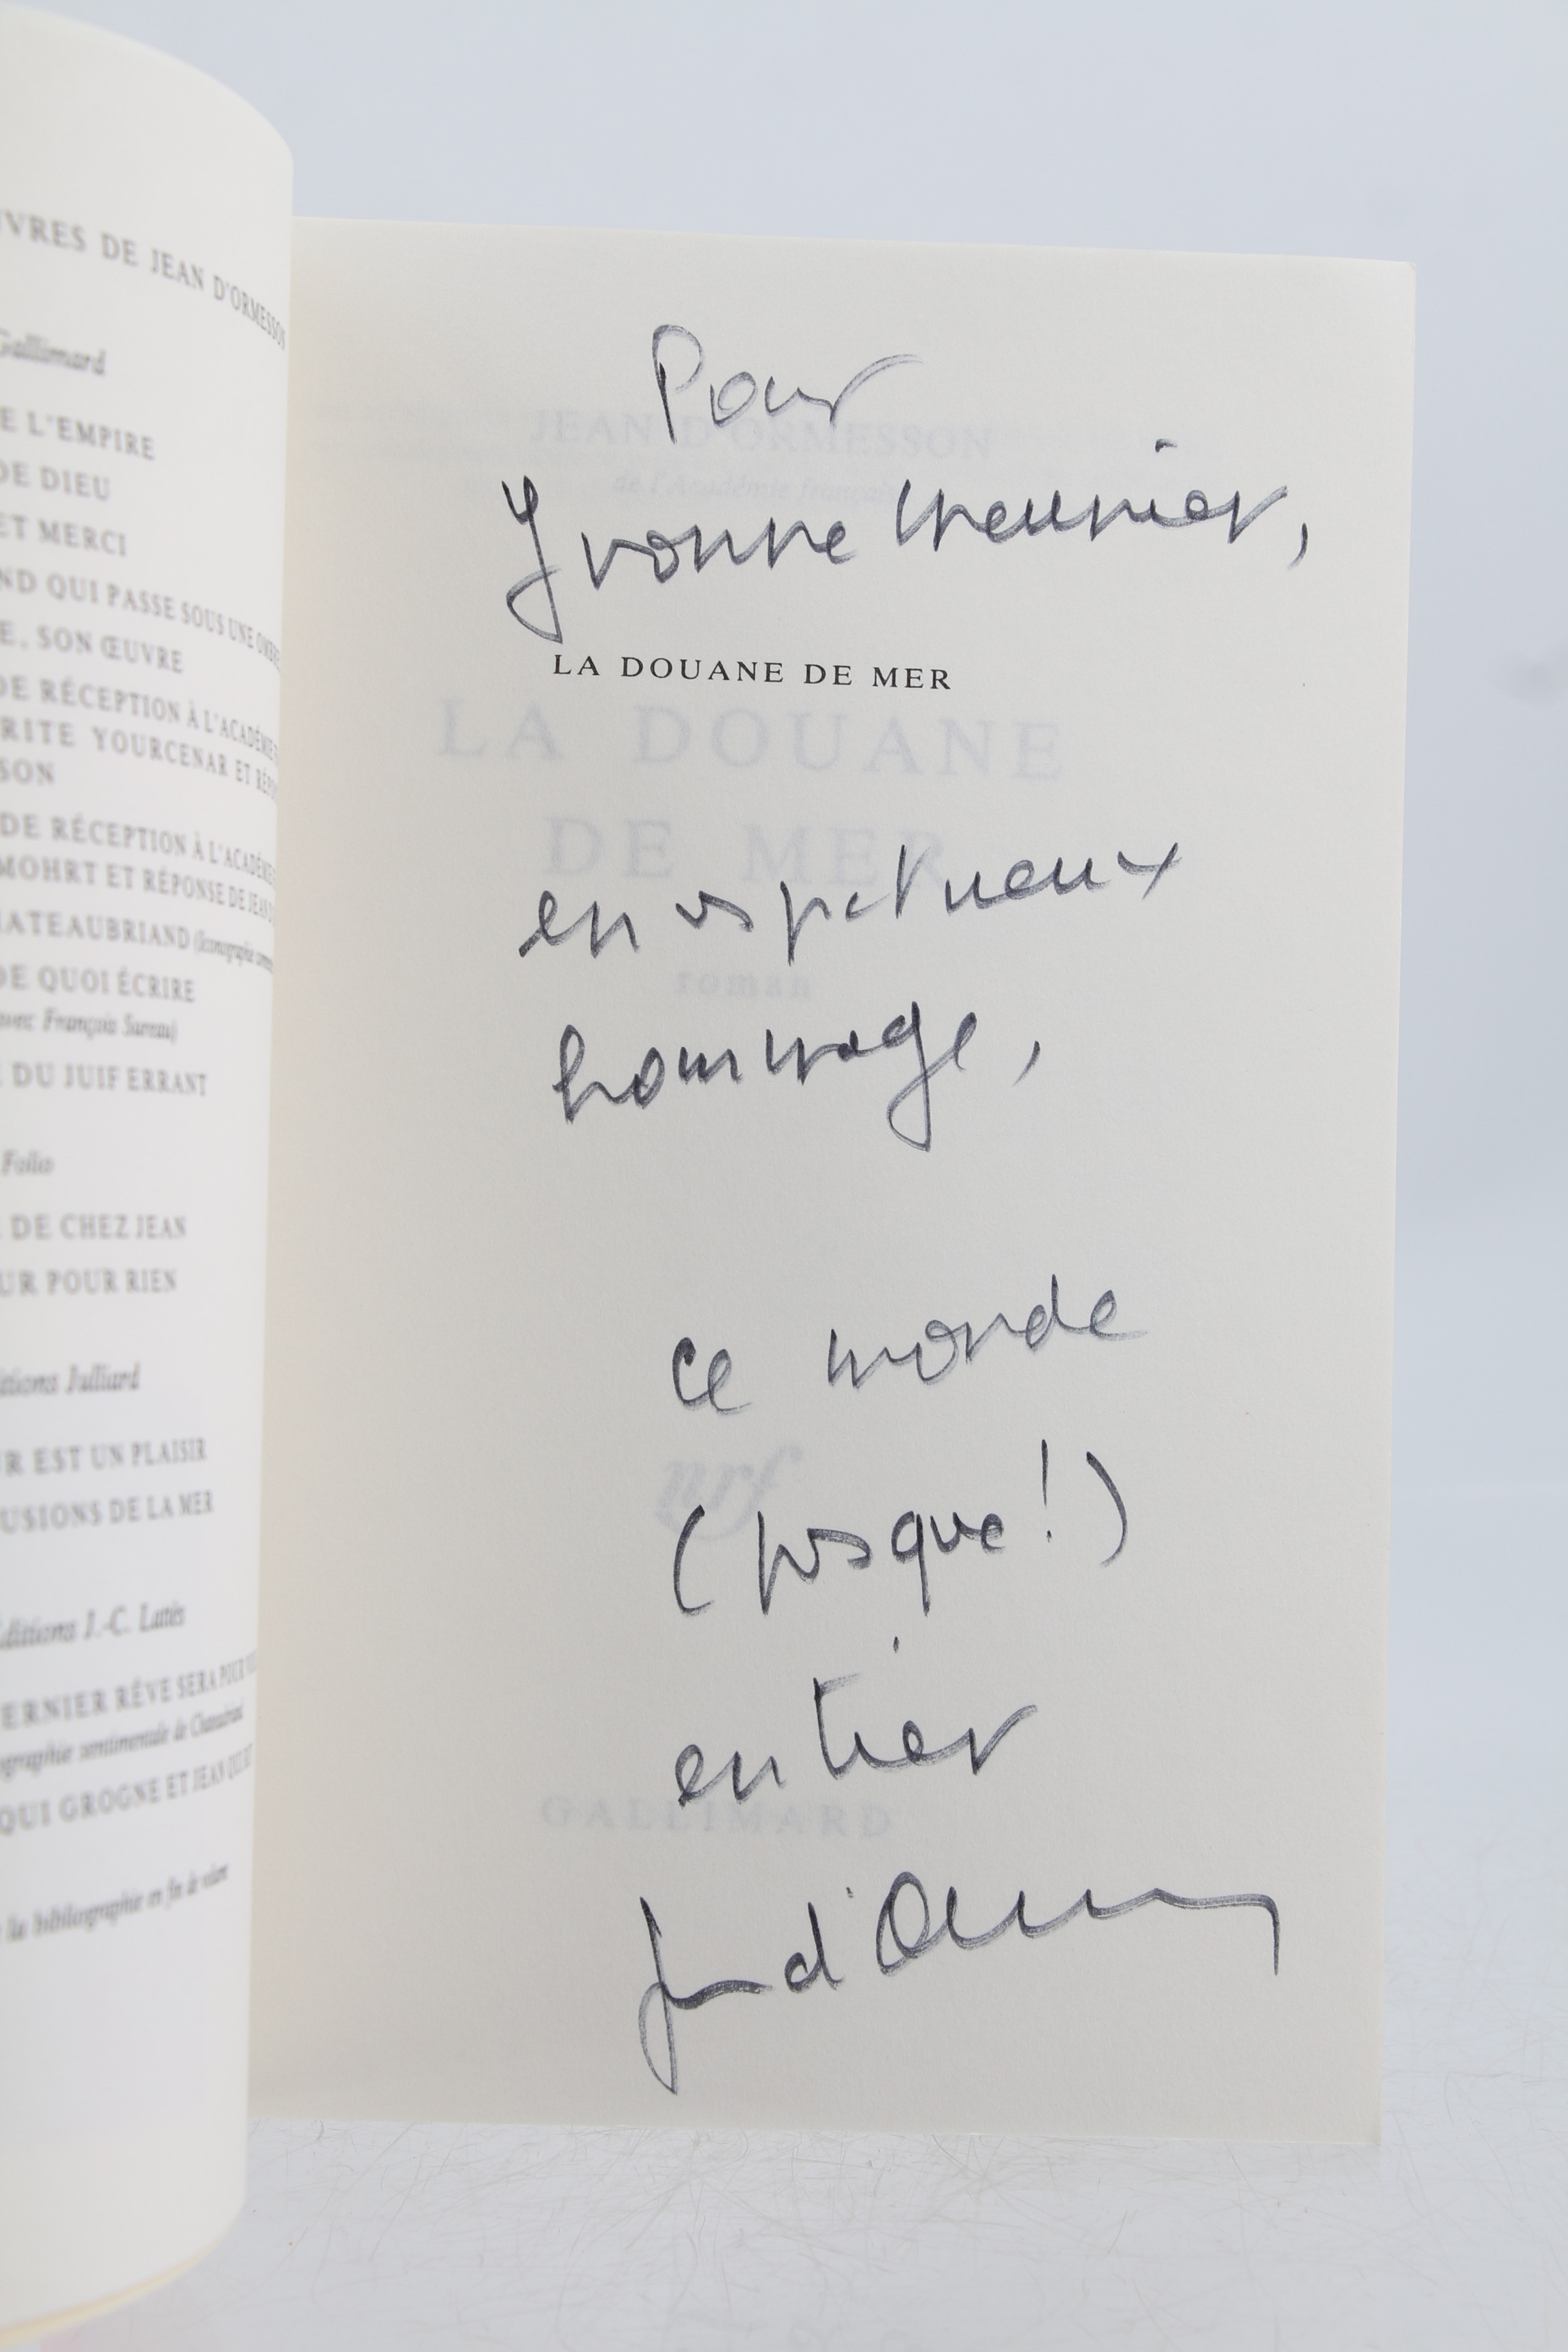 UVRES DE JEAN D'ORMESSON
Gallimard
E L'EMPIRE
DE DIEU
ET MERCI
ND QUI PASSE SOUS UNE OMBRE
E, SON ŒUVRE
DE RÉCEPTION À L'ACADÉMIE
RITE YOURCENAR ET RÉPON
SON
DE RÉCEPTION À L'ACADÉMIE
MOHRT ET RÉPONSE DE JEAN D
HATEAUBRIAND (Iconographie comm
DE QUOI ÉCRIRE
avec François Sureau)
E DU JUIF ERRANT
Folio
R DE CHEZ JEAN
UR POUR RIEN
itions Julliard
R EST UN PLAISIR
USIONS DE LA MER
Éditions J.-C. Lattès
ERNIER RÊVE SERA POUR VOUS
ographie sentimentale de Chateaubriand
QUI GROGNE ET JEAN QUI RIT
la bibliographie en fin de volume
Pour
Yvonne Meunier,
JEAN D'ORMESSON
de l'Académie française
LA DOUANE DE MER
LA DOUANE
DE MER
en respectueux
roman
hommage,
ce monde
nrf
(presque!)
entier
GALLIMARD
Jean d'Ormesson